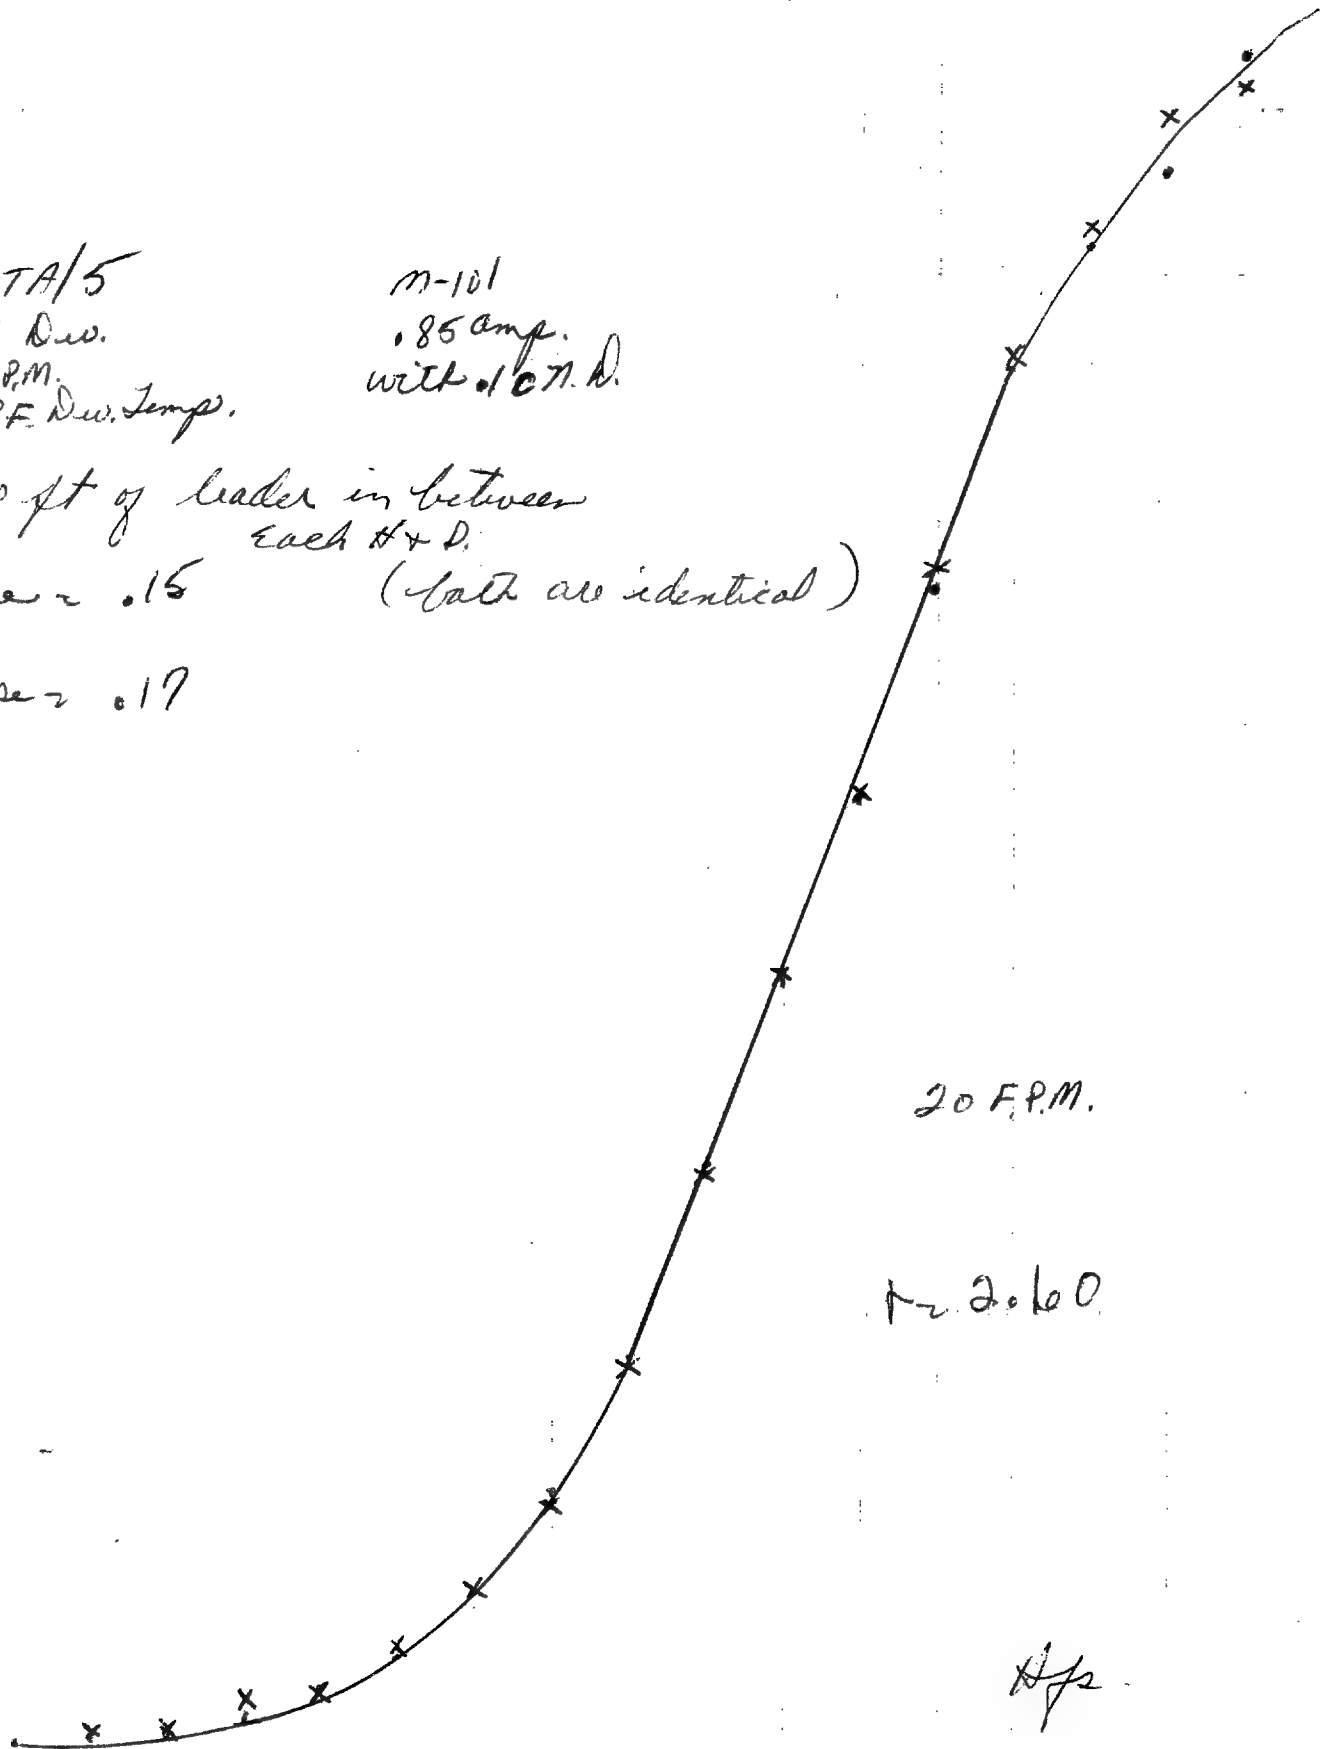 TA/5
Dev.
P.M.
°F. Dev. Temp.
M-101
.85 amp.
with .10 N.D.
ft of leader in between
Each H & D.
= .15 (both are identical)
= .17
20 F.P.M.
= 2.60